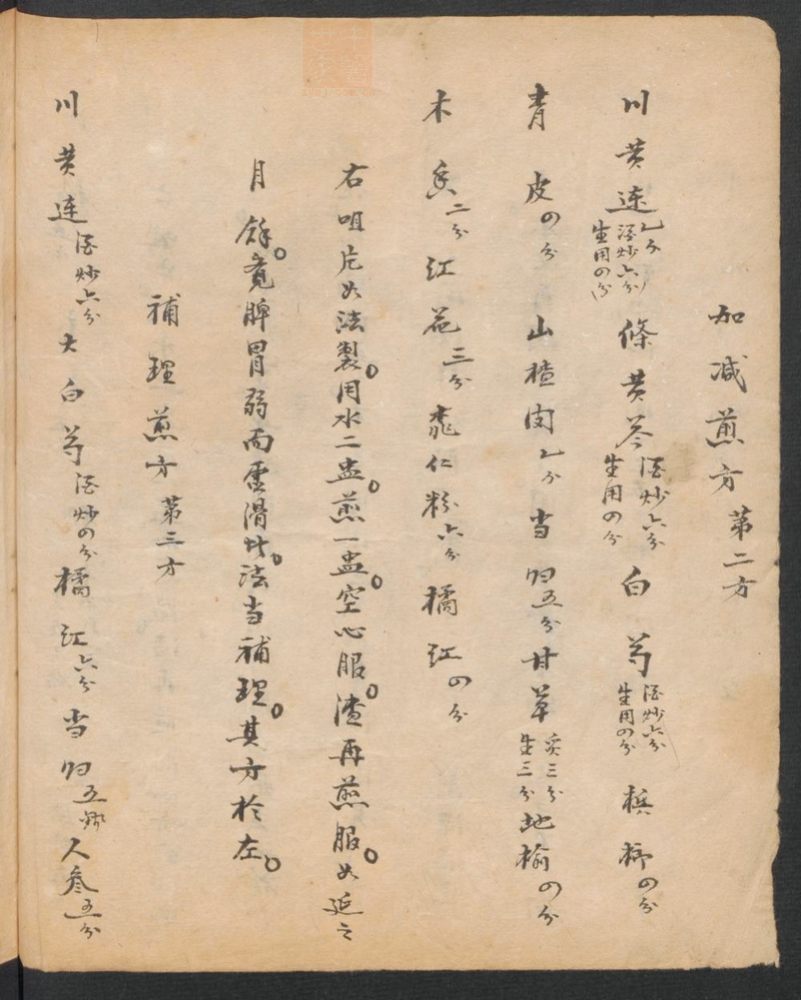 加減煎方 第二方
川黄連 乙分 酒炒六分 生用四分 條黄芩 酒炒六分 生用四分 白芍 酒炒六分 生用四分 槟榔四分
青皮四分 山楂肉乙分 当归五分 甘草 炙三分 生三分 地榆四分
木香二分 红花三分 桃仁粉六分 橘红四分
右咀片如法製。用水二盅。煎一盅。空心服。渣再煎服。如延之
月餘。覚脾胃弱而虚滑者。法当補理。其方於左。
補理煎方 第三方
川黄連酒炒六分 大白芍酒炒四分 橘红六分 当归五分 人參五分